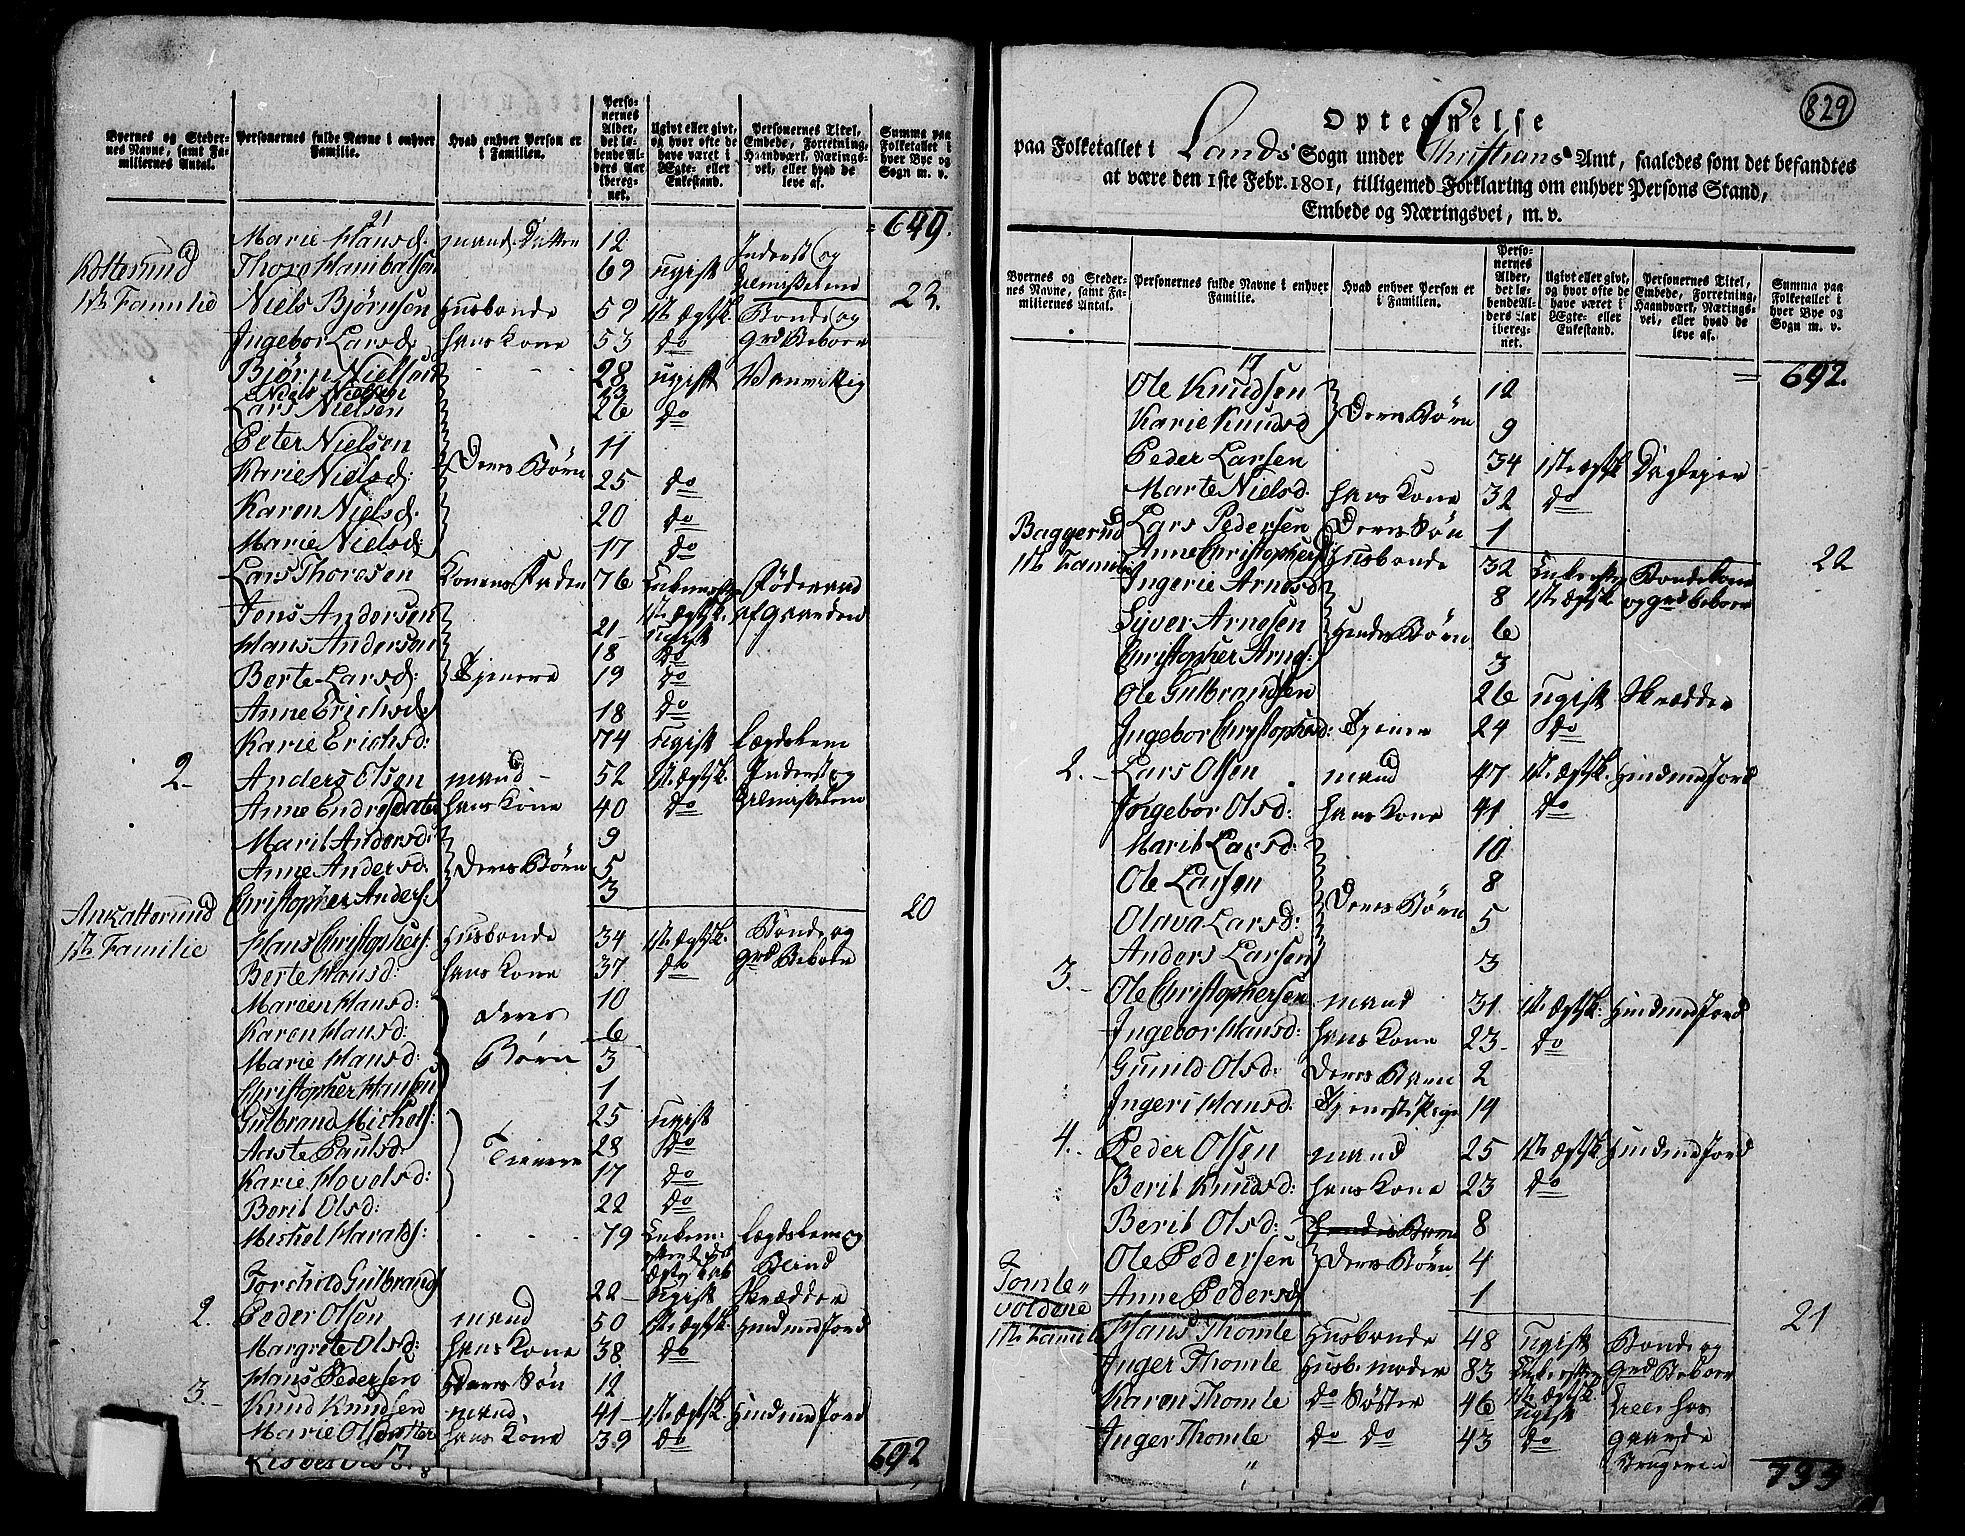 Byernes og Steder-
nes Navne, samt Fa-
miliernes Antal.
Personernes fulde Navne i enhver
Familie.
Hvad enhver Person er
i Familien.
Perso-
nernes
Alder,
det lø-
bende Al-
ders Aar
iberegn-
net.
Ugivt eller givt,
og hvor ofte de
have været i
Ægte- eller
Enkestand.
Personernes Titel,
Embede, Forretning,
Haandværk, Nærings-
vei, eller hvad de
leve af.
Summa paa
Folketallet i
hver Bye og
Sogn m. v.
21 649.
Marie Hansd. mand. Datter 12
Kotterud Thore Hanibalsen 69 ugift Inderst og
1te Familie Niels Bjørnsen Husbonde 59 1te Ægtsk. Bonde og 23.
Ingebor Larsd. hans Kone 53 do grd Beboer
Bjørn Nielsen 28 ugift Vanvittig
Niels Nielsen 23
Lars Nielsen 26 do
Peter Nielsen 11
Karie Nielsd: Deres Børn 25 do
Karen Nielsd. 20 do
Marie Nielsd: 17 do
Lars Thoresen Konens Fader 76 Føderaad
Jens Andersen 21 af Gaarden
Hans Andersen 18 do
Berte Larsd: Tjenere 19 do
Anne Erichsd: 18 do
Karie Erichsd: 74 ugift Lægdslem
2. Anders Olsen mand 52 1te Ægtsk. Inderst og
Anne Endresdatter hans Kone 40 do
Marit Andersd: 9
Anne Andersd: Deres Børn 5
Christopher Anders: 3
Ankatterund 20
1te Familie Hans Christophers: Husbonde 34 1te Ægtsk. Bonde og
Berte Hansd: hans Kone 37 do grd Beboer
Mareen Hansd: deres 10
Karen Hansd: 6
Marie Hansd: Børn 3
Christopher Hansen 1
Gulbrand Michels: 25 ugift
Aaste Paulsd: 28 do
Karie Hovelsd: Tienere 17 do
Berit Olsd: 22 do
Michel Harals: 79 Lægdslem og
Blind
Torchild Gulbrands 22 ugift Skrædder
2. Peder Olsen mand 50 1te Ægtsk. Huusmd m Jord
Margrete Olsd: hans Kone 38 do
Hans Pedersen Deres Søn 12
3. Knud Knudsen mand 41 1te Ægtsk. Huusmd m Jord
Marie Olsdatter hans Kone 39 do
17 692
829
Optegnelse
paa Folketallet i Lands Sogn under Christians Amt, saaledes som det befandtes
at være den 1ste Febr. 1801, tilligemed Forklaring om enhver Persons Stand,
Embede og Næringsvei, m. v.
Byernes og Steder-
nes Navne, samt Fa-
miliernes Antal.
Personernes fulde Navne i enhver
Familie.
Hvad enhver Person er
i Familien.
Perso-
nernes
Alder,
det lø-
bende Al-
ders Aar
iberegn-
net.
Ugivt eller givt,
og hvor ofte de
have været i
Ægte- eller
Enkestand.
Personernes Titel,
Embede, Forretning,
Haandværk, Nærings-
vei, eller hvad de
leve af.
Summa paa
Folketallet i
hver Bye og
Sogn m. v.
17 692.
Ole Knudsen 12
Karie Knudsd Deres Børn 9
Peder Larsen 34 1te Ægtsk
Marte Nielsd. hans Kone 32 do
Baggerud Lars Pedersen Deres Søn 1
1te Familie Anne Christophersd Husbonde 32 Bondekone 22
Ingerie Arnesd 8 1te Ægtsk. og grd beboer
Syver Arnesen Hendes Børn 6
Christopher Arnes: 3
Ole Gulbrandsen 26 ugift Skrædder
Ingebor Christophersd: Tjener 24 do
2. Lars Olsen mand 47 1te Ægtsk. Huusmd m Jord
Ingebor Olsd: hans Kone 41 do
Marit Larsd: 10
Ole Larsen 8
Olava Larsd: Deres Børn 5
Anders Larsen 3
3. Ole Christophersen mand 31 1te Ægtsk: Huusmd m Jord
Ingebor Hansd: hans Kone 23 do
Gunild Olsd: Deres Barn 2
Ingeri Hansd: Tjenestepige 14
4. Peder Olsen mand 25 1te Ægtsk. Huusmd m Jord
Berit Knudsd: hans Kone 23 do
Berit Olsd: Hendes Barn 8
Ole Pedersen Deres Børn 4
Tomle- Anne Pedersd 1
voldene 21
1te Familie Hans Thomle Husbonde 48 ugift Bonde og
Inger Thomle Husb. moder 83 grd Beboer
Karen Thomle do Søster 46 ugift
Inger Thomle do do 43 do
733